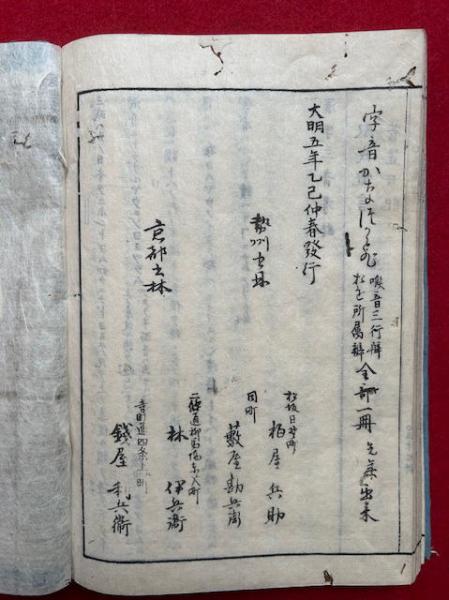 字音かなづかひ 喉音三行辨 全部一冊 先華出来
おを所属辨
大明五年乙巳仲春發行
勢州書林
松坂日野町
柏屋兵助
同町
藪屋勘兵衛
京都書林
二條通柳馬場東入町
林伊兵衛
寺町通四条上ル町
銭屋利兵衛